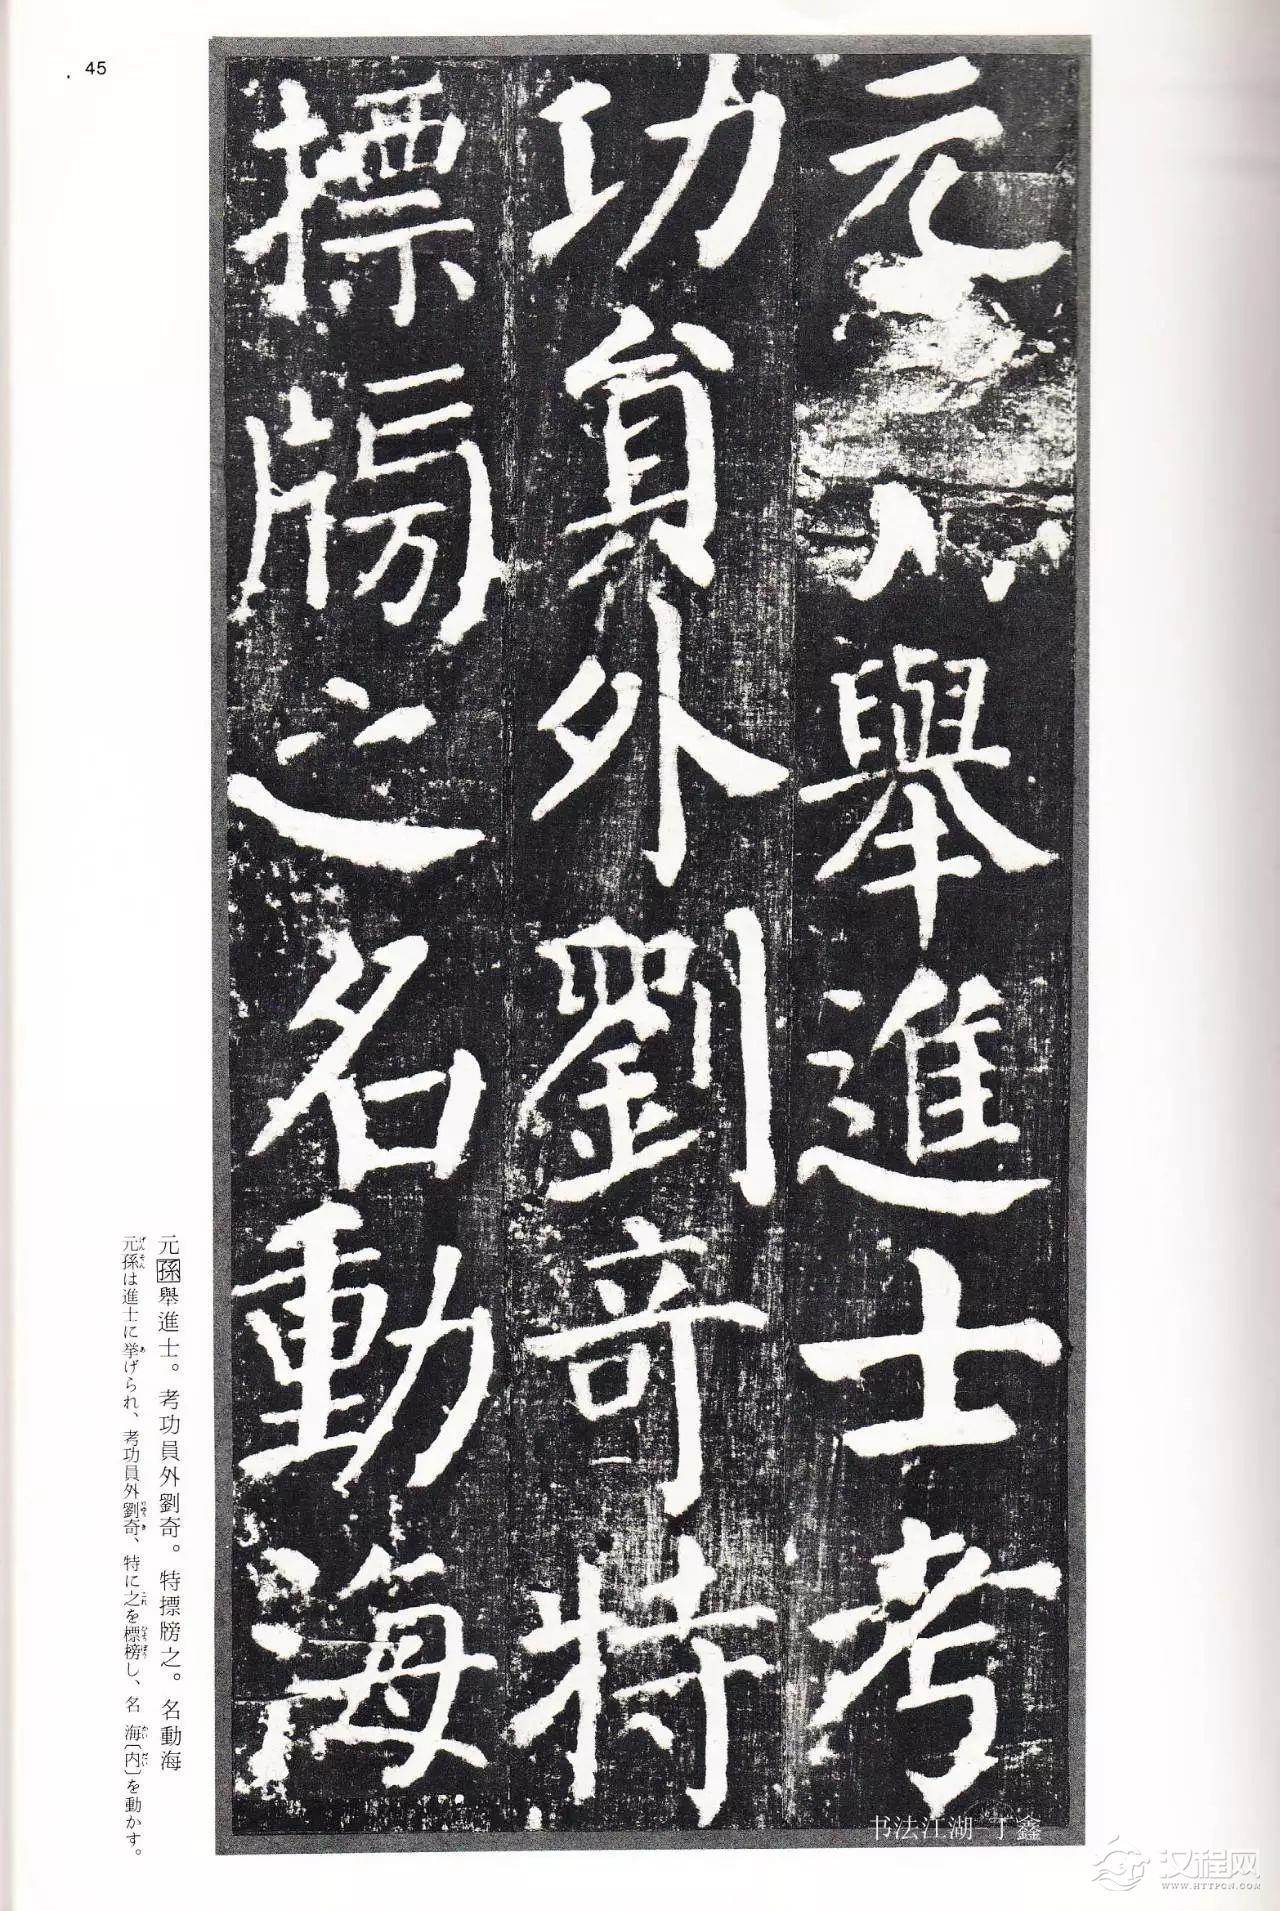 45
元舉進士考
功員外劉奇特
摽牓之名動海
元孫舉進士。考功員外劉奇。特摽牓之。名動海
元孫は進士に挙げられ、考功員外劉奇、特に之を標榜し、名 海〔内〕を動かす。
书法江湖 丁鑫
汉程网
WWW.HTTPCN.COM